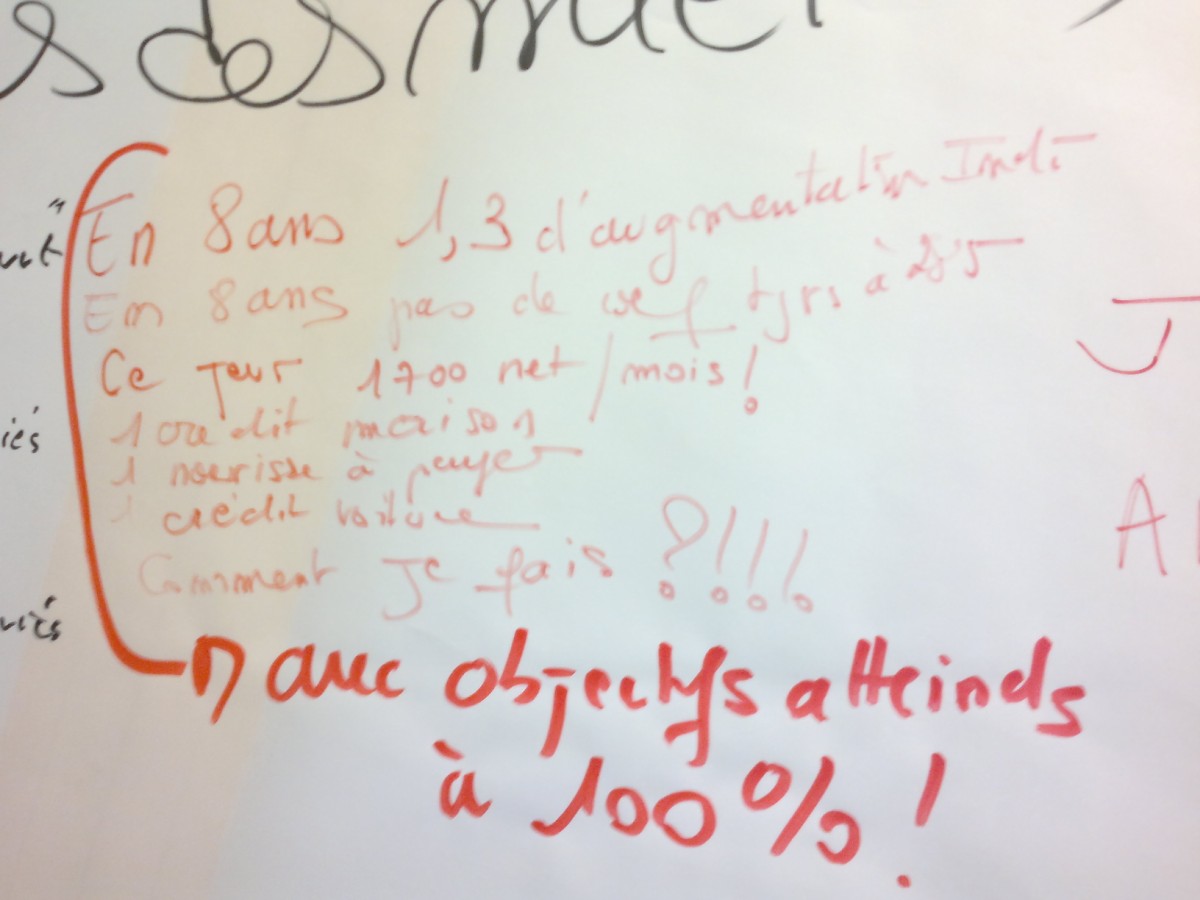 s des
En 8 ans 1,3 d'augmentation Indi
En 8 ans pas de coef tjrs à 285
Ce jour 1700 net / mois !
1 crédit maison
1 nourisse à payer
1 crédit voiture
Comment je fais ?!!!
avec objectifs atteinds
à 100% !